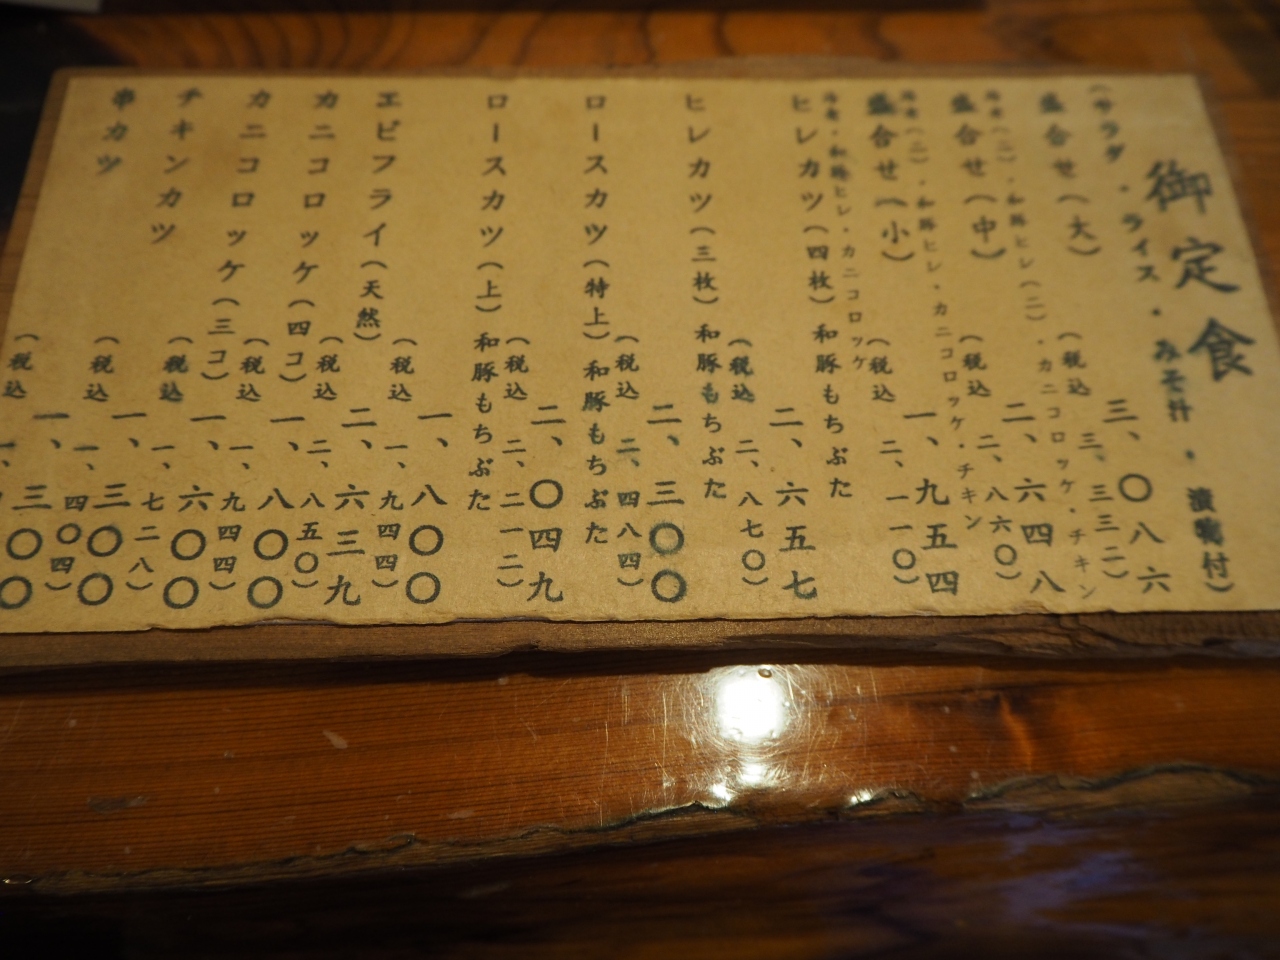 御定食
(サラダ・ライス・みそ汁・漬物付)
盛合せ(大) 三、〇八六
海老(二)・和豚ヒレ(二)・カニコロッケ・チキン
(税込 三、三三二)
盛合せ(中) 二、六四八
海老(二)・和豚ヒレ・カニコロッケ・チキン
(税込 二、八六〇)
盛合せ(小) 一、九五四
海老・和豚ヒレ・カニコロッケ
(税込 二、一一〇)
ヒレカツ(四枚)和豚もちぶた
二、六五七
(税込 二、八七〇)
ヒレカツ(三枚)和豚もちぶた
二、三〇〇
(税込 二、四八四)
ロースカツ(特上)和豚もちぶた
二、〇四九
(税込 二、二一二)
ロースカツ(上)和豚もちぶた
一、八〇〇
(税込 一、九四四)
エビフライ(天然) 二、六三九
(税込 二、八五〇)
カニコロッケ(四コ) 一、八〇〇
(税込 一、九四四)
カニコロッケ(三コ) 一、六〇〇
(税込 一、七二八)
チキンカツ 一、三〇〇
(税込 一、四〇四)
串カツ 一、三〇〇
(税込 一、